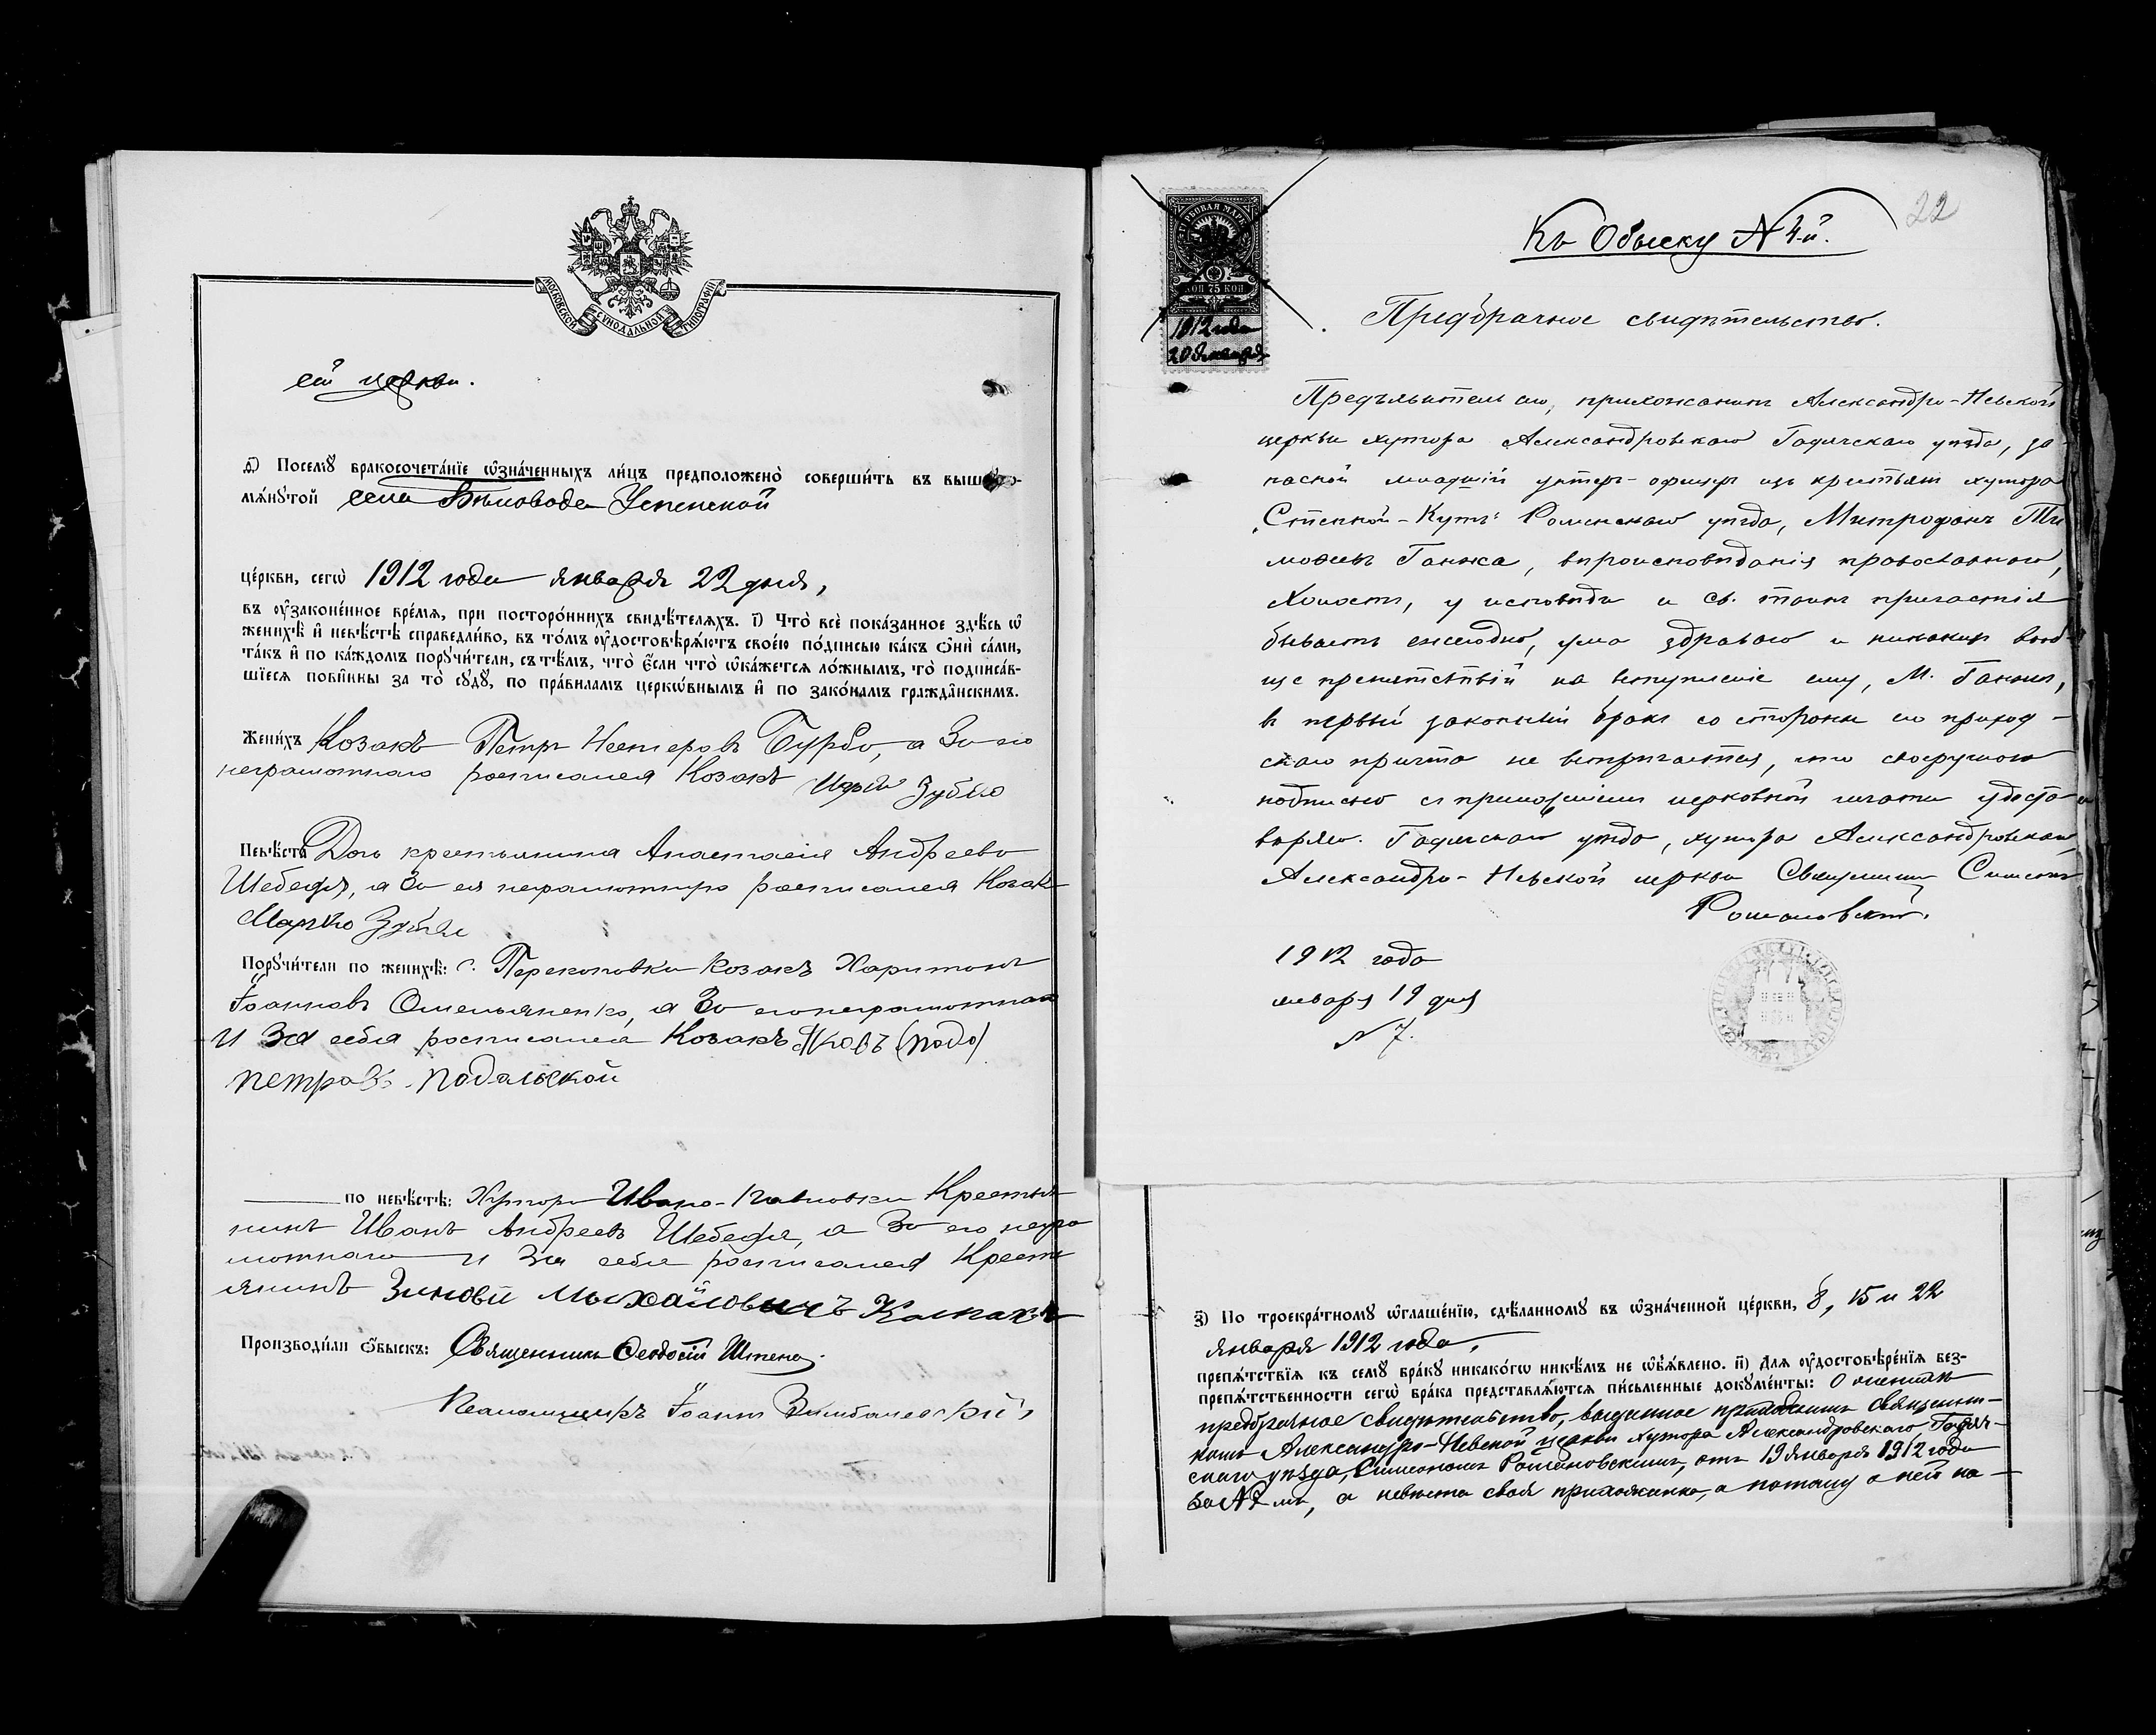 МОСКОВСКОЙ СѴНОДАЛЬНОЙ ТИПОГРАФІИ
ей церкви.
ѳ҃) Посемꙋ̀ бракосочета́нїе ѡ҆зна́ченныхъ ли́цъ предположено̀ соверши́ть въ выш
мѧ́нꙋтой села Бѣловода Успенской
це́ркви, сегѡ̀ 1912 года января 22 дня,
въ ᲂу҆законе́нное вре́мѧ, при посторо́ннихъ свидѣ́телѧхъ. і҃) Что̀ всѐ пока́занное здѣ́сь ѡ҆
женихѣ̀ и҆ невѣ́стѣ справедли́во, въ то́мъ ᲂу҆достовѣрѧ́ютъ свое́ю по́дписью ка́къ ѻ҆нѝ са́ми,
та́къ и҆ по ка́ждомъ порꙋчи́тели, съ тѣ́мъ, что̀ є҆́сли что̀ ѡ҆ка́жетсѧ ло́жнымъ, то̀ подписа́в-
шїесѧ пови́нны за то̀ сꙋдꙋ̀, по пра́виламъ церко́внымъ и҆ по зако́намъ гражда́нскимъ.
Жени́хъ Козакъ Петръ Нестеровъ Бурбо, а За его
неграмотнаго росписался Козакъ Зубко
Невѣ́ста Дочь крестьянина Анастасія Андреева
Шебедя, а За ея неграмотную росписался Козакъ
Марко
Порꙋчи́тели по женихѣ̀: с. Перекоповки Козакъ Харитонъ
Іоанновъ Омельяненко, а За его неграмотнаго
И За себя росписался Козакъ Яковъ (подо)
петровъ подольской
по невѣ́стѣ: Хутора Ивано- Крестья
нинъ Иванъ Андреевъ Шебедя, а За его негра
мотнаго И За себя росписался Крест
янинъ Зиновій Михайловичъ
Производи́ли ѻ҆́быскъ: Священникъ Ѳеодосій
Псаломщикъ Іоаннъ
22
Къ Обыску № 4-й.
ГЕРБОВАЯ МАРКА
КОП 75 КОП
1912 года
20 Января
Предбрачное свидѣтельство.
Предъявитель сего, прихожанинъ Александро-Невской
церкви хутора Александровскаго Гадячскаго уѣзда, за-
пасной младшій унтеръ-офицеръ изъ крестьянъ хутора
„Степной-Кутъ“ Роменскаго уѣзда, Митрофанъ Ти
моѳеевъ Ганжа, вѣроисповѣданія православнаго,
холостъ, у исповѣди и Св. таинъ причастія
бываетъ ежегодно, ума здраваго и никакихъ вооб-
ще препятствій на вступленіе ему, М. Ганжѣ,
въ первый законный бракъ со стороны его приход-
скаго причта не встрѣчается, что своеручною
подписью съ приложеніемъ церковной печати удосто-
вѣряю. Гадячскаго уѣзда, хутора Александровскаго,
Александро-Невской церкви Священникъ Симеонъ
Романовскій.
1912 года
января 19 дня
№ 7.
з҃) По троекра́тномꙋ ѡ҆глаше́нїю, сдѣ́ланномꙋ въ ѡ҆зна́ченной це́ркви, 8, 15 и 22
января 1912 года,
препѧ́тствїѧ къ семꙋ̀ бра́кꙋ никако́гѡ никѣ́мъ не ѡ҆б̾ѧ́влено. и҃) Для ᲂу҆достовѣре́нїѧ без-
препѧ́тственности сегѡ̀ бра́ка представлѧ́ютсѧ пи́сьменные докꙋме́нты: О женихѣ
предбрачное свидѣтельство, выданное приходскимъ священни-
комъ Александро-Невской церкви хутора Александровскаго, Гадяч-
скаго уѣзда, Симеономъ Романовскимъ, отъ 19 января 1912 года
за № 7 мъ, а невѣста своя прихожанка, а потому о ней на-